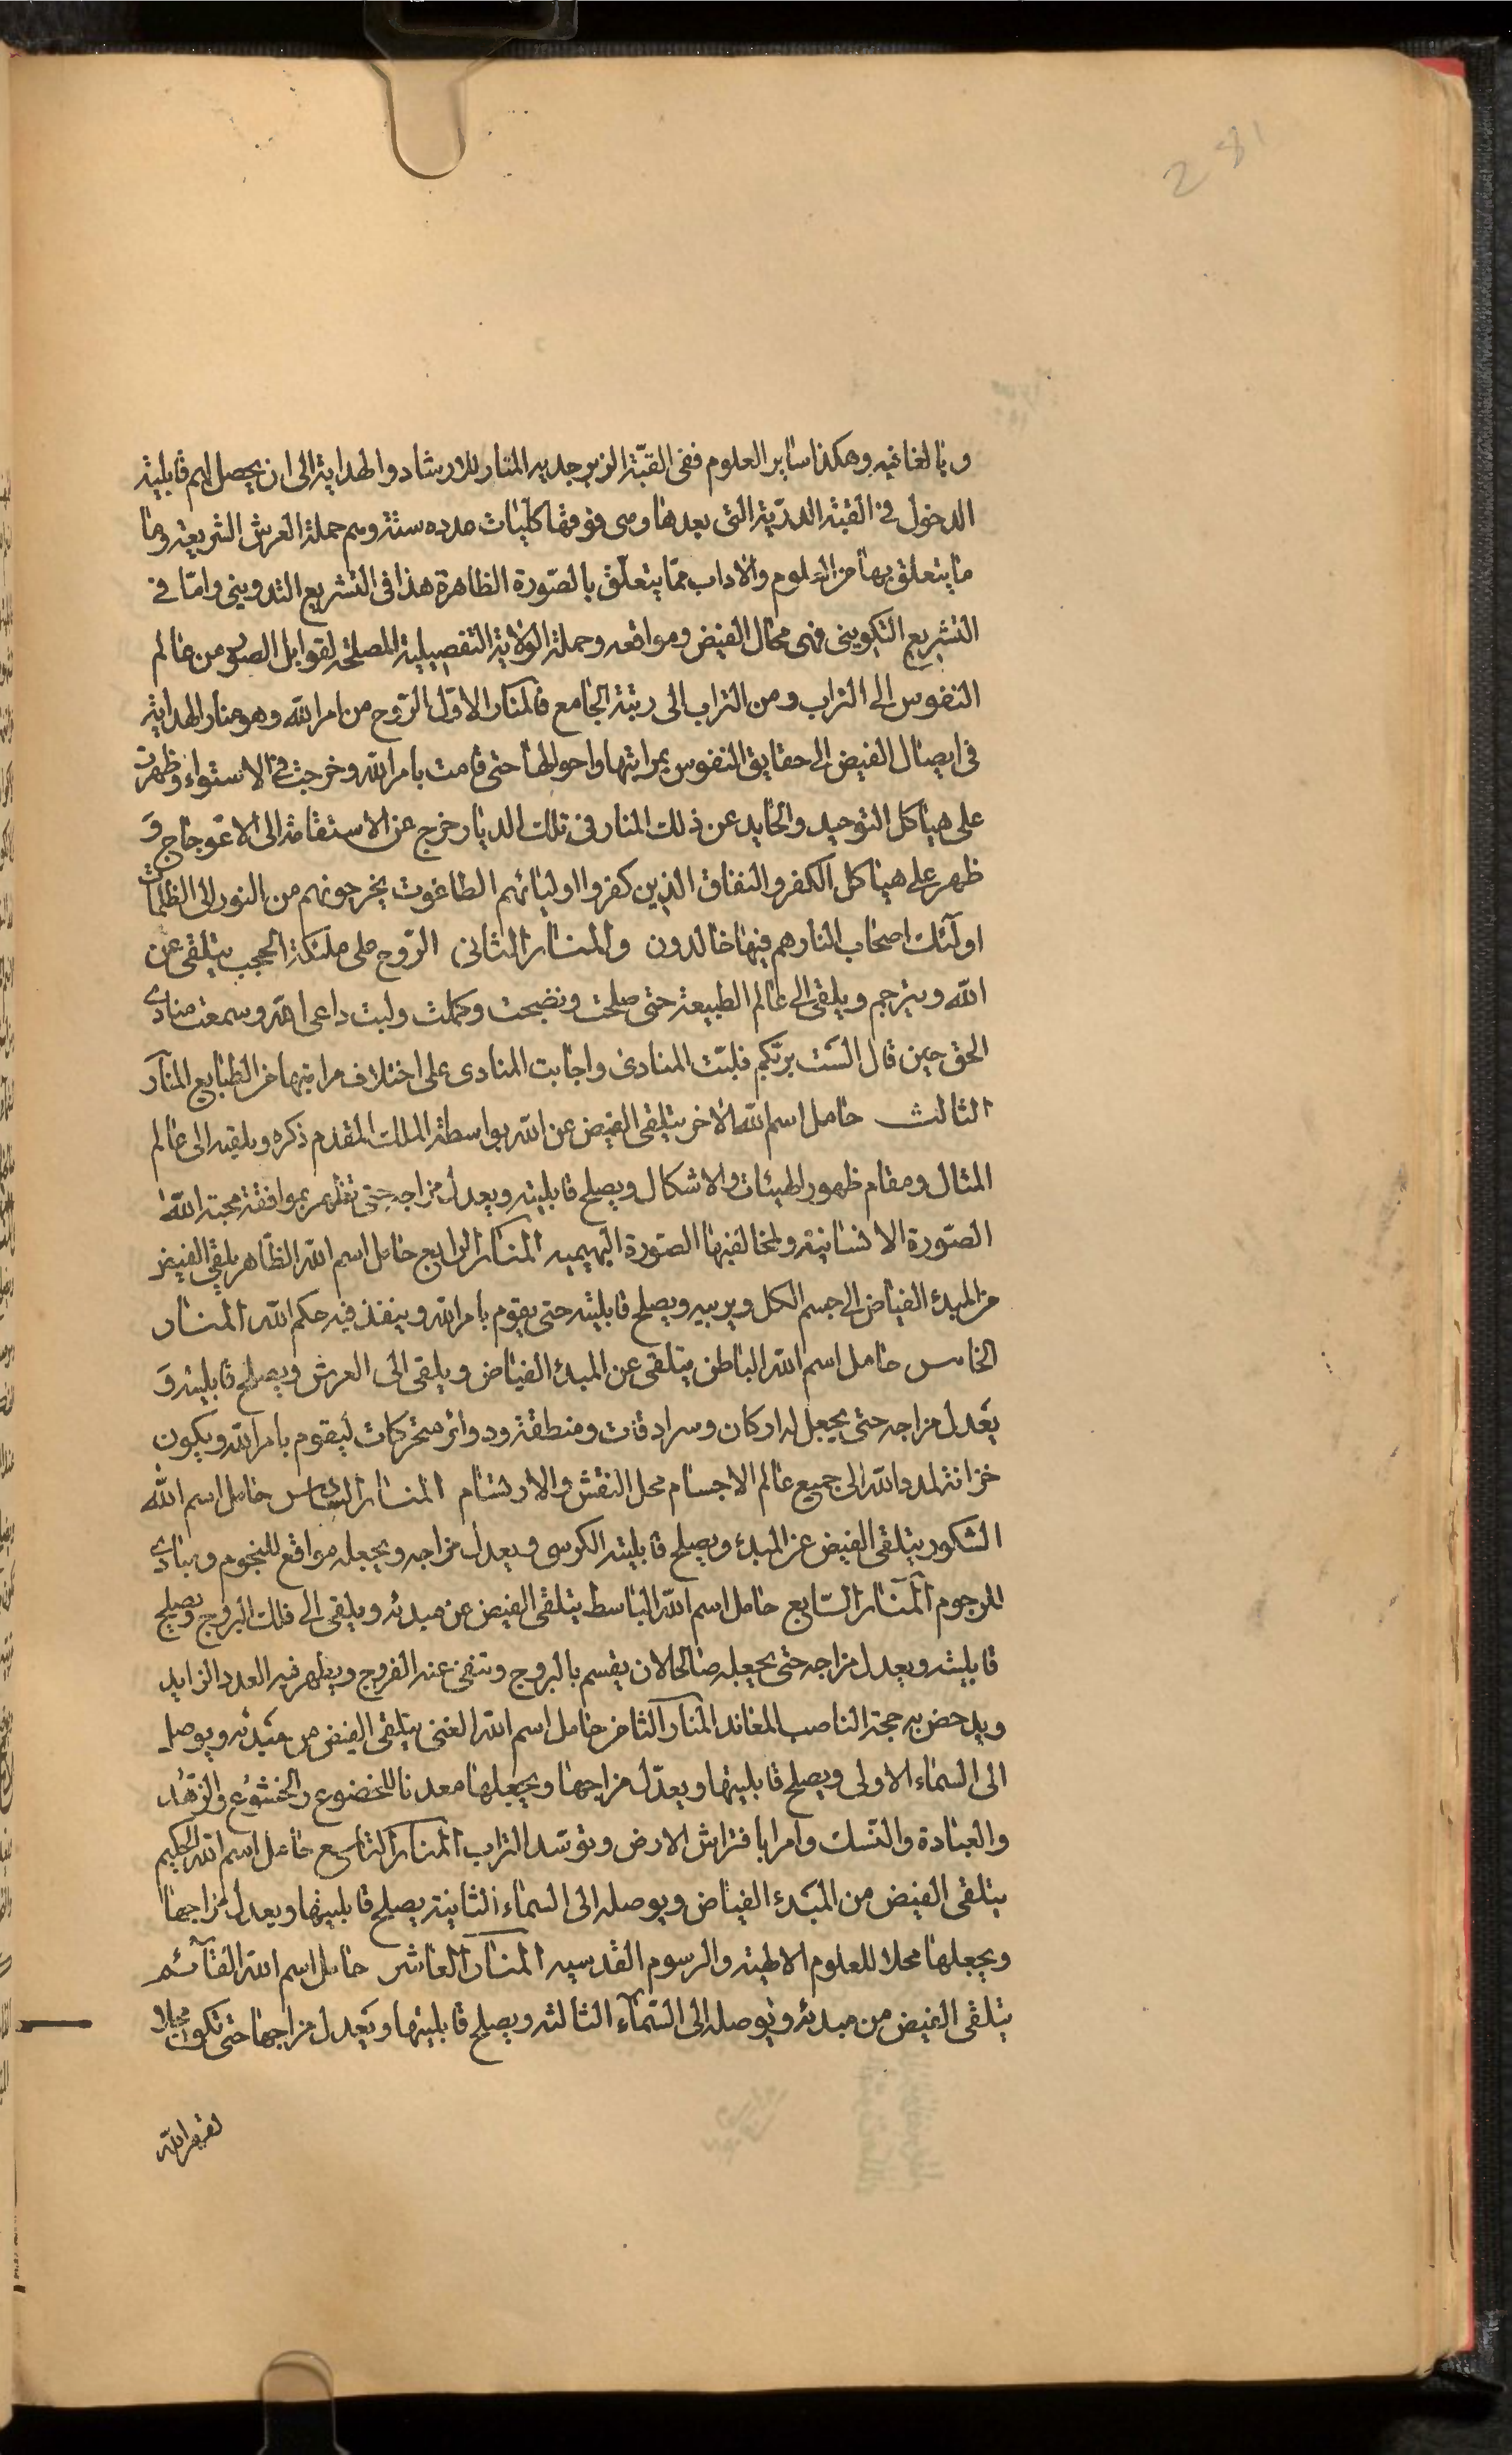 281
وبالغائيه وهكذا سایر العلوم ففى القبّة الزبرجديه المنار للارشاد والهداية الى ان يحصل لهم قابلية
الدخول فى القبة الدرّية التى بعدها ومى فوقها كليات عدده ستة وهم حملة العرش الشريعة وما
ما يتعلق بها من العلوم والاداب ممّا يتعلّق بالصّورة الظاهرة هذا فى التشريع التدوينى وامّا فى
التشريع التكوينى فهى محال الفيض ومواقعه وحملة الولاية التفصيلية المصلحة لقوابل الصلوح من عالم
النفوس الى التراب ومن التراب الى رتبة الجامع فالمنار الاوّل الرّوح من امر الله وهو منار الهداية
فى ايصال الفيض الى حقايق النفوس بمراتبها واحوالها حتى قامت بامر الله وخرجت فى الاستواء وظهرت
على هياكل التوحيد والحايد عن ذلك المنار فى تلك الديار خرج عن الاستقامة الى الاعوجاج وَ
ظهر على هياكل الكفر والنفاق الذين كفروا اوليائهم الطاغوت يخرجونهم من النور الى الظلمات
اولٓئك اصحاب النار هم فيها خالدون والمنار الثانى الرّوح على ملئكة الحجب يتلقى عن
الله ويترجم ويلقى الى عالم الطبيعة حتى صلحت ونضجت وكملت ولبت داعى الله وسمعت منادى
الحق حين قال الست بربّكم فلبّت المنادى واجابت المنادى على اختلاف مراتبها من الطبايع المنار
الثالث حامل اسم الله الاخر يتلقى الفيض عن الله بواسطة الملك المقدم ذكره ويلقيه الى عالم
المثال ومقام ظهور الهيئات والاشكال ويصلح قابليته ويعدل مزاجه حتى تظهر بموافقة محبة الله
الصّورة الانسانية ولمخالفتها الصّورة البهيميه المنار الرابع حامل اسم الله الظّاهر يلقى الفيض
من المبدء الفياض الى جسم الكل ويربيه ويصلح قابليته حتى يقوم بامر الله وينفذ فيه حكم الله المنار
الخامس حامل اسم الله الباطن يتلقى عن المبدء الفياض ويلقى الى العرش ويصلح قابليته وَ
يعدل مزاجه حتى يجعل له اركان وسرادقات ومنطقة ودوائر متحركات ليقوم بامر الله ويكون
خزانة لمدد الله الى جميع عالم الاجسام محل النقش والارتسام المنار السادس حامل اسم الله
الشكور يتلقى الفيض عن المبدء ويصلح قابلية الكرسى ويعدل مزاجه ويجعله مواقع للنجوم ومبادى
للرجوم المنار السّابع حامل اسم الله الباسط يتلقى الفيض عن مبدئه ويلقى الى فلك البروج ويصلح
قابليته ويعدل مزاجه حتى يجعله صالحا لان يقسم بالبروج وتنفى عنه الفروج ويظهر فيه العدد الزايد
ويدحض به حجة الناصب المعاند المنار الثامن حامل اسم الله الغنى يتلقى الفيض من مَبْدئه ويوصل
الى السّماء الاولى ويصلح قابليتها ويعدّل مزاجها ويجعلها معدنا للخضوع والخشوع والزّهد
والعبادة والنّسك وامرا بافتراش الارض وتوسّد التراب المنار التاسع حامل اسم الله الحكيم
يتلقى الفيض من المبدء الفياض ويوصله الى السّماء الثانية يصلح قابليتها ويعدل مزاجها
ويجعلها محلا للعلوم الالهية والرسوم القدسيه المنار العاشر حامل اسم الله القآئم
يتلقى الفيض من مبدئه ويوصله الى السّمآء الثالثه ويصلح قابليتها ويعدل مزاجها حتى تكون محلا
لقهر الله